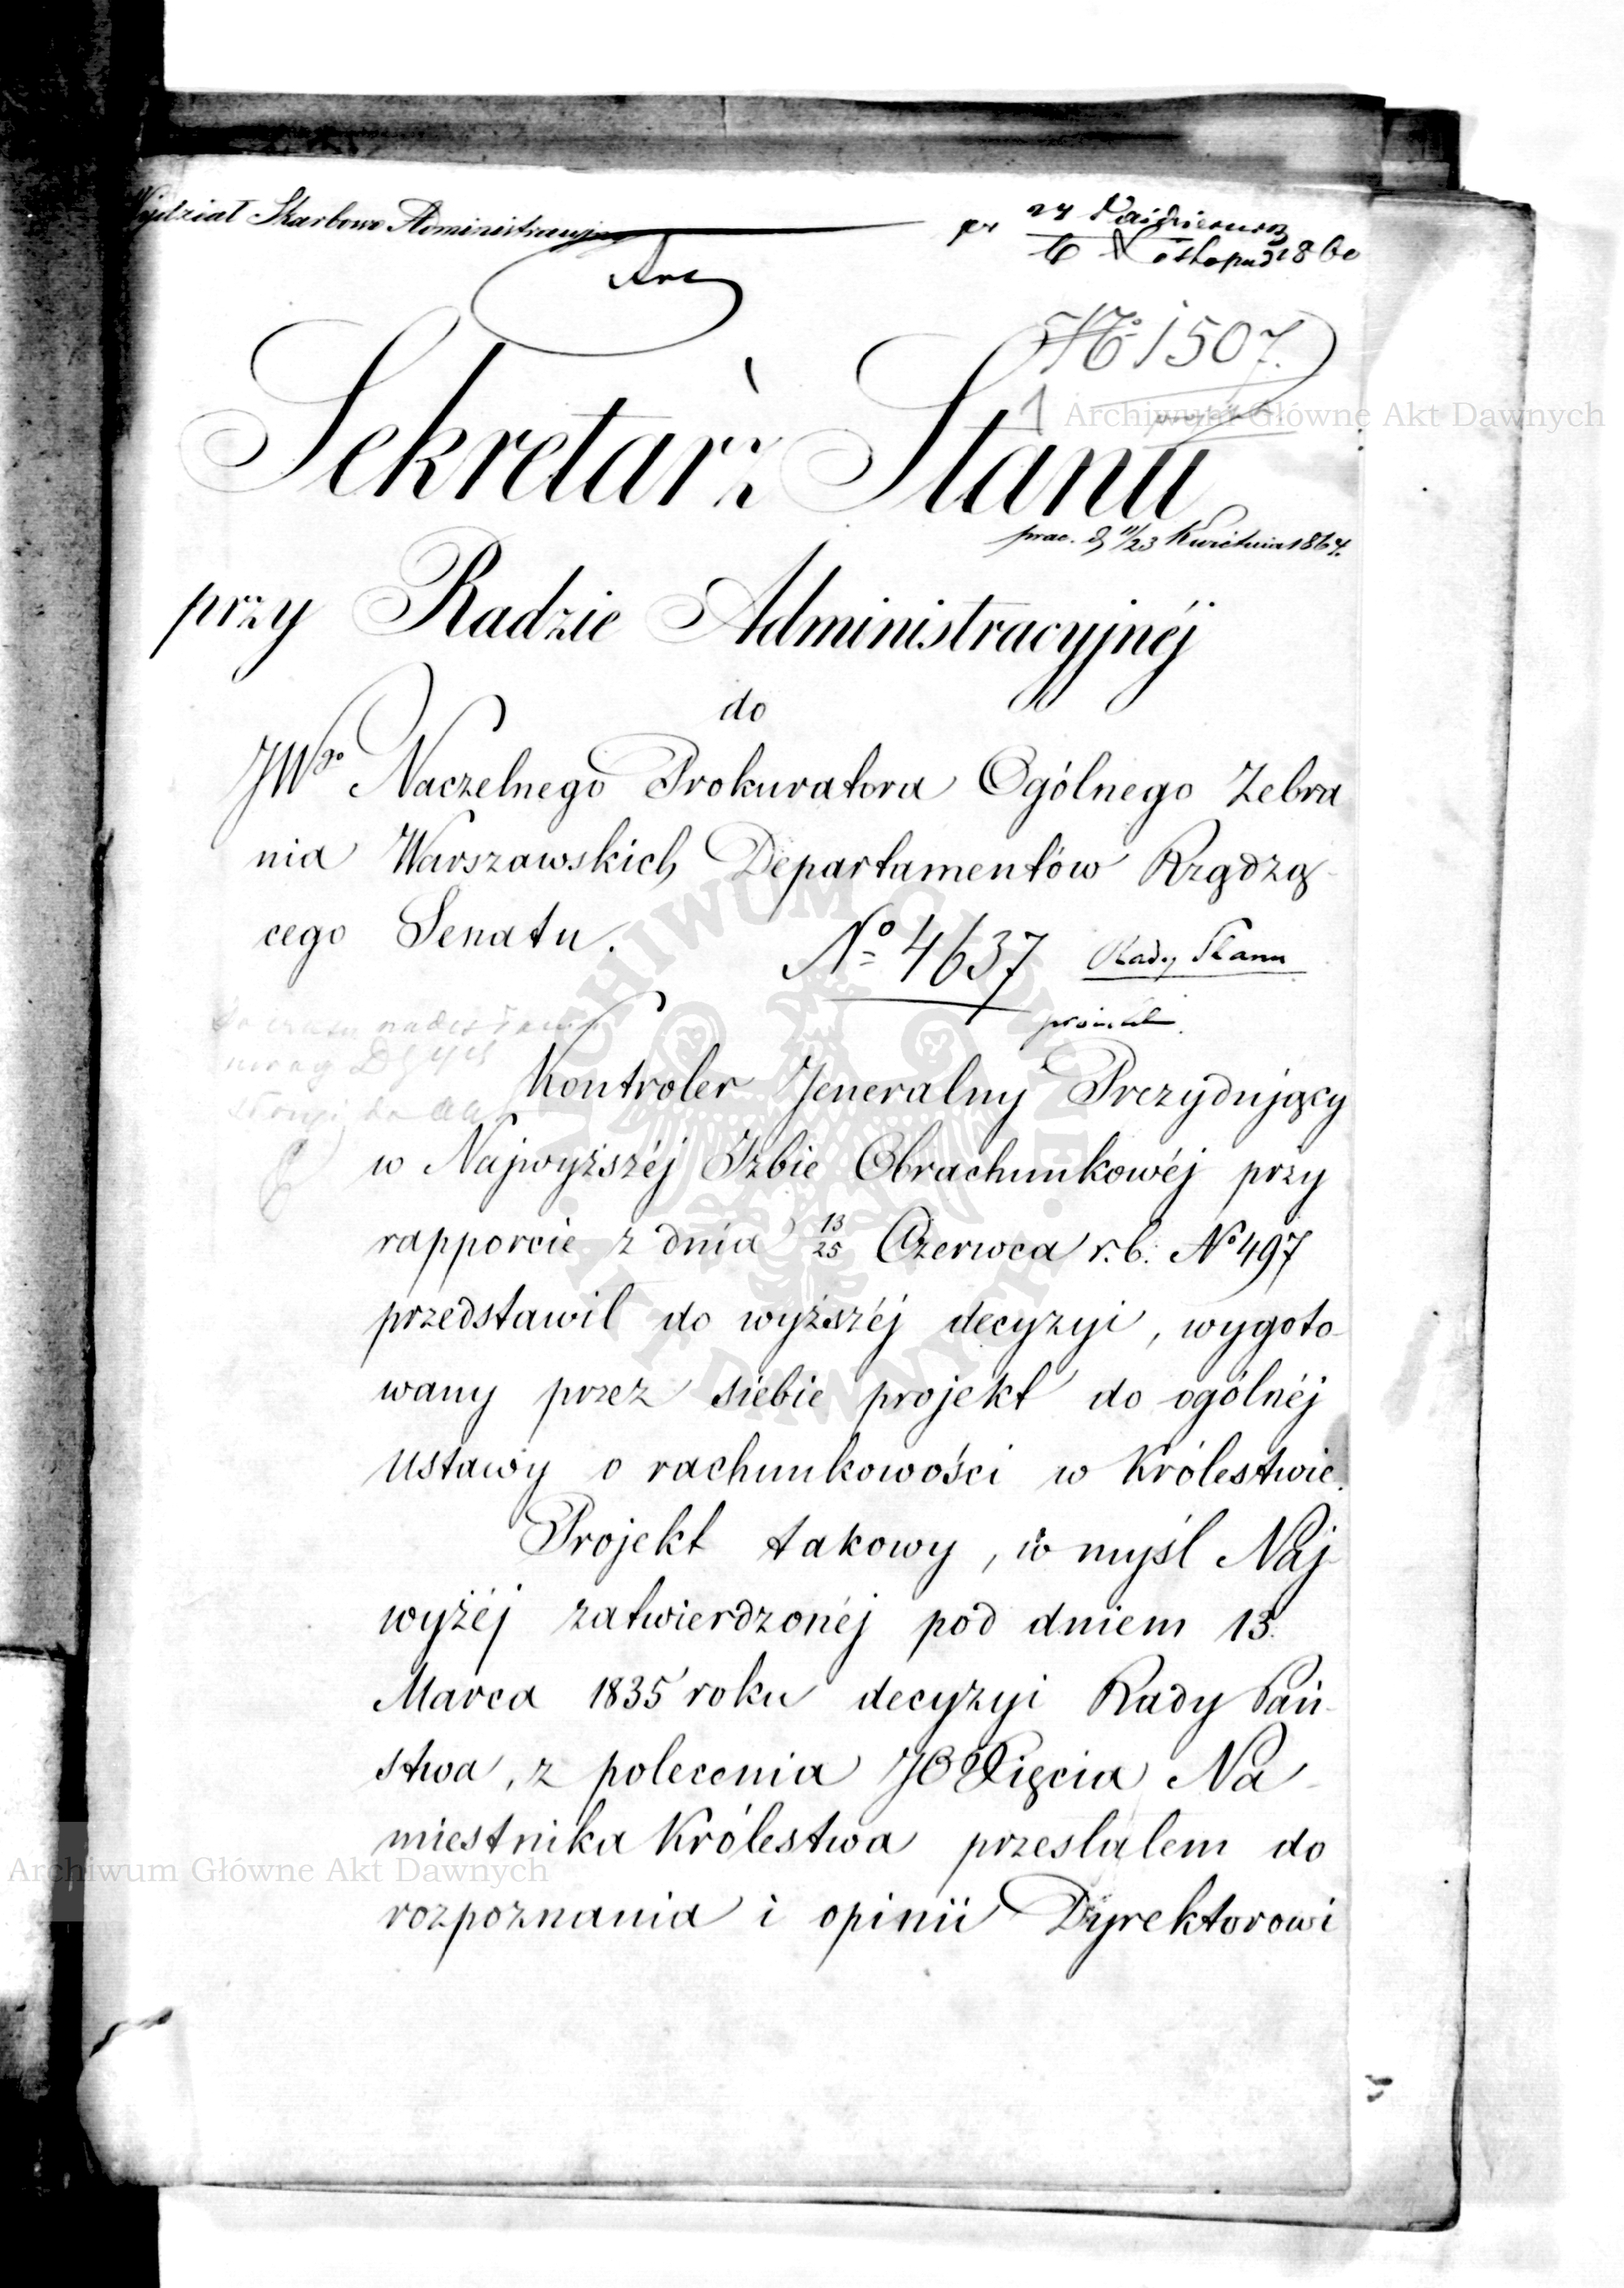 Wydział Skarbowo Administracyjny
pr 24 Października
6 Listopad 1860
№ 1507.
1
Archiwum Główne Akt Dawnych
Sekretarz Stanu
prac. d 11/23 Kwietnia 1864.
przy Radzie Administracyjnéj
do
JWgo Naczelnego Prokuratora Ogólnego Zebra
nia Warszawskich Departamentów Rządzą-
cego Senatu.
№ 4637 Rady Stanu
Kontroler Jeneralny Prezydujący
w Najwyższéj Izbie Obrachunkowéj przy
rapporcie z dnia 13/25 Czerwca r.b. № 497
przedstawił do wyższéj decyzyi, wygoto-
wany przez siebie projekt do ogólnéj
ustawy o rachunkowości w Królestwie.
Projekt takowy, w myśl Naj-
wyżéj zatwierdzonéj pod dniem 13.
Marca 1835 roku decyzyi Rady Pań-
stwa, z polecenia JO Xięcia Na-
miestnika Królestwa przesłałem do
Archiwum Główne Akt Dawnych
rozpoznania i opinii Dyrektorowi
ARCHIWUM GŁÓWNE AKT DAWNYCH